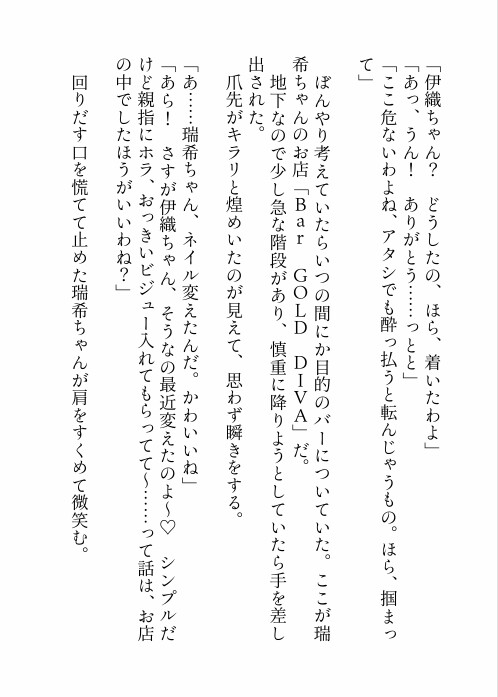 「伊織ちゃん？　どうしたの、ほら、着いたわよ」
「あっ、うん！　ありがとう……っとと」
「ここ危ないわよね、アタシでも酔っ払うと転んじゃうもの。ほら、掴まっ
て」
　ぼんやり考えていたらいつの間にか目的のバーについていた。ここが瑞
希ちゃんのお店「Ｂａｒ　ＧＯＬＤ　ＤＩＶＡ」だ。
　地下なので少し急な階段があり、慎重に降りようとしていたら手を差し
出された。
　爪先がキラリと煌めいたのが見えて、思わず瞬きをする。
「あ……瑞希ちゃん、ネイル変えたんだ。かわいいね」
「あら！　さすが伊織ちゃん、そうなの最近変えたのよ〜♡　シンプルだ
けど親指にホラ、おっきいビジュー入れてもらってて〜……って話は、お店
の中でしたほうがいいわね？」
　回りだす口を慌てて止めた瑞希ちゃんが肩をすくめて微笑む。